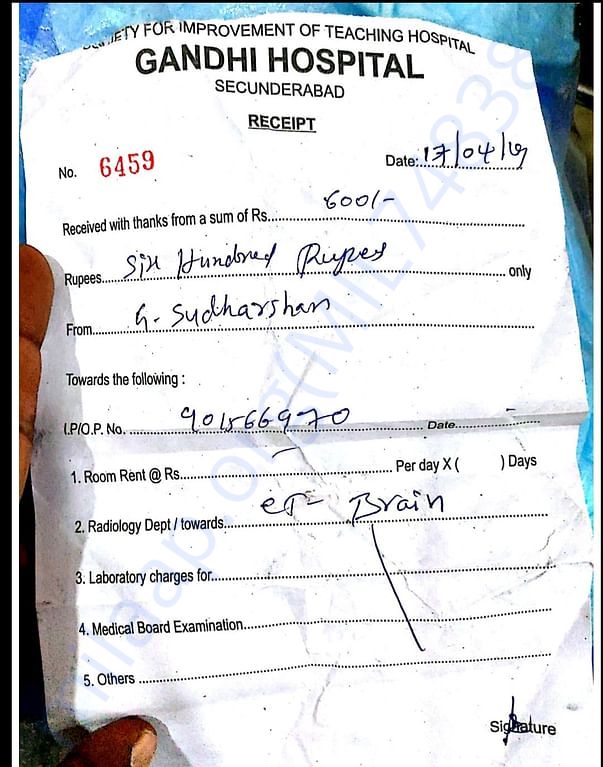 SOCIETY FOR IMPROVEMENT OF TEACHING HOSPITAL
GANDHI HOSPITAL
SECUNDERABAD
RECEIPT
No. 6459 Date: 17/04/19
Received with thanks from a sum of Rs. 600/-
Rupees Six Hundred Rupes only
From G. Sudharshan
Towards the following :
I.P/O.P. No. 901566970 Date -
1. Room Rent @ Rs. - Per day X ( ) Days
2. Radiology Dept / towards CT- Brain
3. Laboratory charges for
4. Medical Board Examination
5. Others
Signature